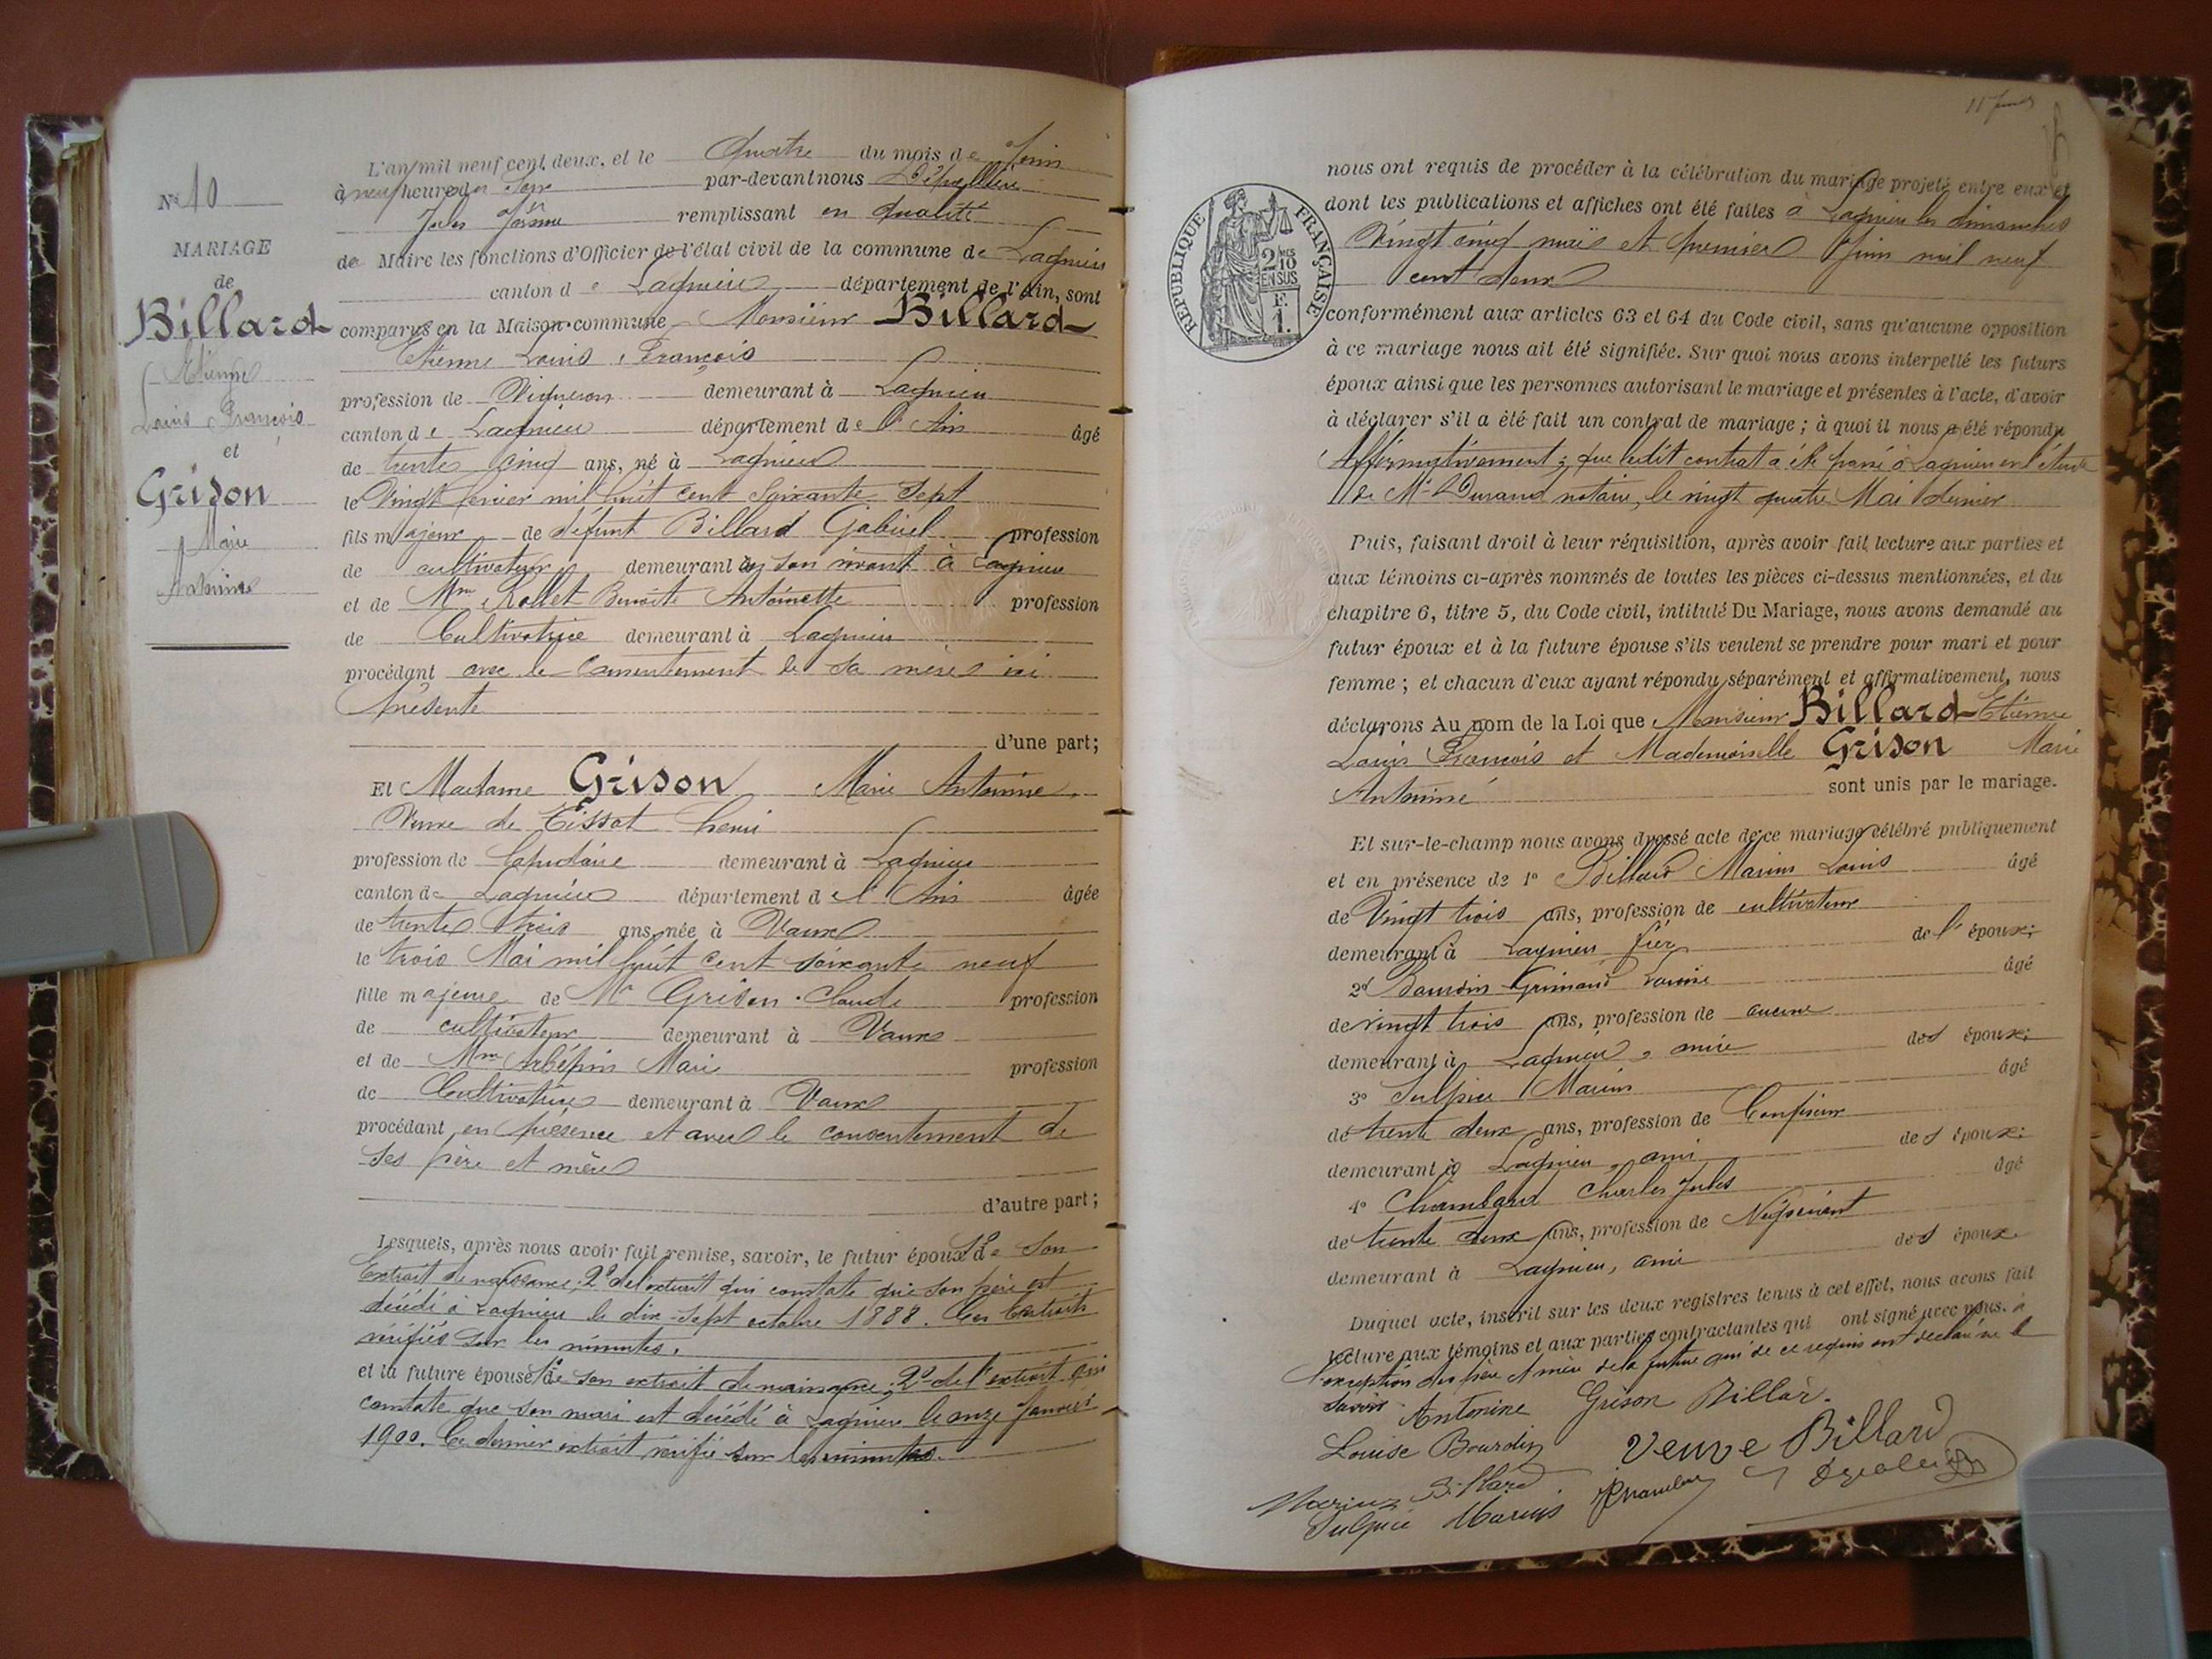 N° 10
MARIAGE
de
Billard
Etienne
Louis François
et
Grison
Marie
Antonine
L'an mil neuf cent deux, et le Quatre du mois de Juin
à neuf heures du Soir par-devant nous
Jules Jérôme remplissant en qualité
de Maire les fonctions d'Officier de l'état civil de la commune de Lagnieu
canton de Lagnieu département de l'Ain, sont
comparus en la Maison commune Monsieur Billard
Etienne Louis François
profession de Vigneron demeurant à Lagnieu
canton de Lagnieu département de l'Ain âgé
de trente cinq ans, né à Lagnieu
le Vingt février mil huit cent soixante sept
fils majeur de défunt Billard Gabriel profession
de cultivateur demeurant en son vivant à Lagnieu
et de Mme Rollet Benoîte Antoinette profession
de Cultivatrice demeurant à Lagnieu
procédant avec le consentement de sa mère ici
présente
d'une part;
Et Madame Grison Marie Antonine
Veuve de Tissot Henri
profession de demeurant à Lagnieu
canton de Lagnieu département de l'Ain âgée
de trente trois ans, née à Vaux
le trois Mai mil huit cent soixante neuf
fille majeure de Mr Grison Claude profession
de cultivateur demeurant à Vaux
et de Mme Arbépin Marie profession
de Cultivatrice demeurant à Vaux
procédant en présence et avec le consentement de
ses père et mère
d'autre part;
Lesquels, après nous avoir fait remise, savoir, le futur époux 1° de son
Extrait de naissance; 2° de l'extrait qui constate que son père est
décédé à Lagnieu le dix-sept octobre 1888. Ces Extraits
vérifiés sur les minutes.
et la future épouse 1° de son extrait de naissance; 2° de l'extrait qui
constate que son mari est décédé à Lagnieu le onze Janvier
1900. Ce dernier extrait vérifié sur les minutes.
RÉPUBLIQUE FRANÇAISE
2/10
EN SUS
F.
1.
nous ont requis de procéder à la célébration du mariage projeté entre eux et
dont les publications et affiches ont été faites à Lagnieu les dimanches
Vingt cinq mai et premier Juin mil neuf
cent deux
conformément aux articles 63 et 64 du Code civil, sans qu'aucune opposition
à ce mariage nous ait été signifiée. Sur quoi nous avons interpellé les futurs
époux ainsi que les personnes autorisant le mariage et présentes à l'acte, d'avoir
à déclarer s'il a été fait un contrat de mariage; à quoi il nous a été répondu
Affirmativement; que ledit contrat a été passé à Lagnieu en l'étude
de Me Durand notaire, le vingt quatre Mai dernier
Puis, faisant droit à leur réquisition, après avoir fait lecture aux parties et
aux témoins ci-après nommés de toutes les pièces ci-dessus mentionnées, et du
chapitre 6, titre 5, du Code civil, intitulé Du Mariage, nous avons demandé au
futur époux et à la future épouse s'ils veulent se prendre pour mari et pour
femme; et chacun d'eux ayant répondu séparément et affirmativement, nous
déclarons Au nom de la Loi que Monsieur Billard Etienne
Louis François et Mademoiselle Grison Marie
Antonine sont unis par le mariage.
Et sur-le-champ nous avons dressé acte de ce mariage célébré publiquement
et en présence de 1° Billard Marius Louis âgé
de Vingt trois ans, profession de cultivateur
demeurant à Lagnieu frère de l'époux;
2° Grimaud Louise âgé
de vingt trois ans, profession de aucune
demeurant à Lagnieu, amie des époux;
3° Sulpice Marius âgé
de trente deux ans, profession de
demeurant à Lagnieu, ami des époux;
4° Chambard Charles Jules âgé
de trente deux ans, profession de Négociant
demeurant à Lagnieu, ami des époux.
Duquel acte, inscrit sur les deux registres tenus à cet effet, nous avons fait
lecture aux témoins et aux parties contractantes qui ont signé avec nous. à
l'exception des père et mère de la future qui de ce requis ont déclaré ne le
savoir
Antonine Grison Billar.
Louise Bourdin Veuve Billard
Marius Billard
Sulpice Marius